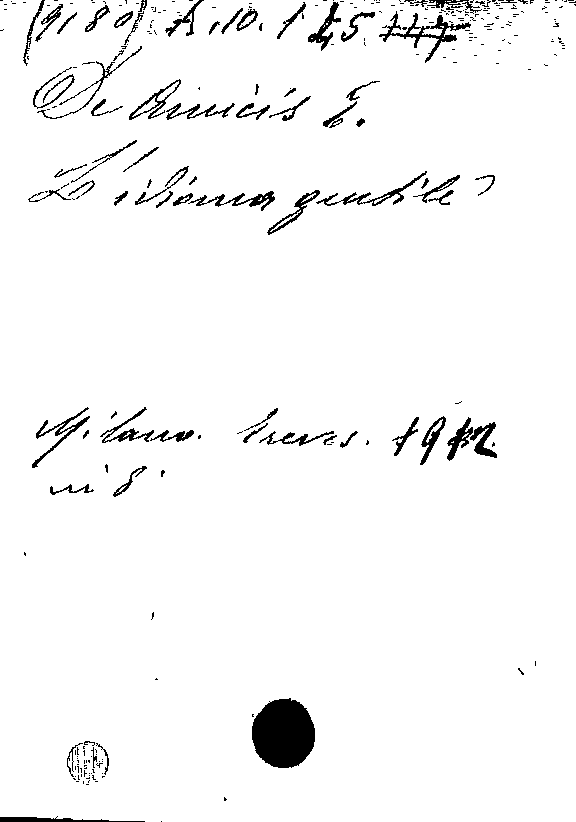 (9180) A.10.1 25
De Amicis E.
L'idioma gentile
Milano. Treves. 1912.
in 8°